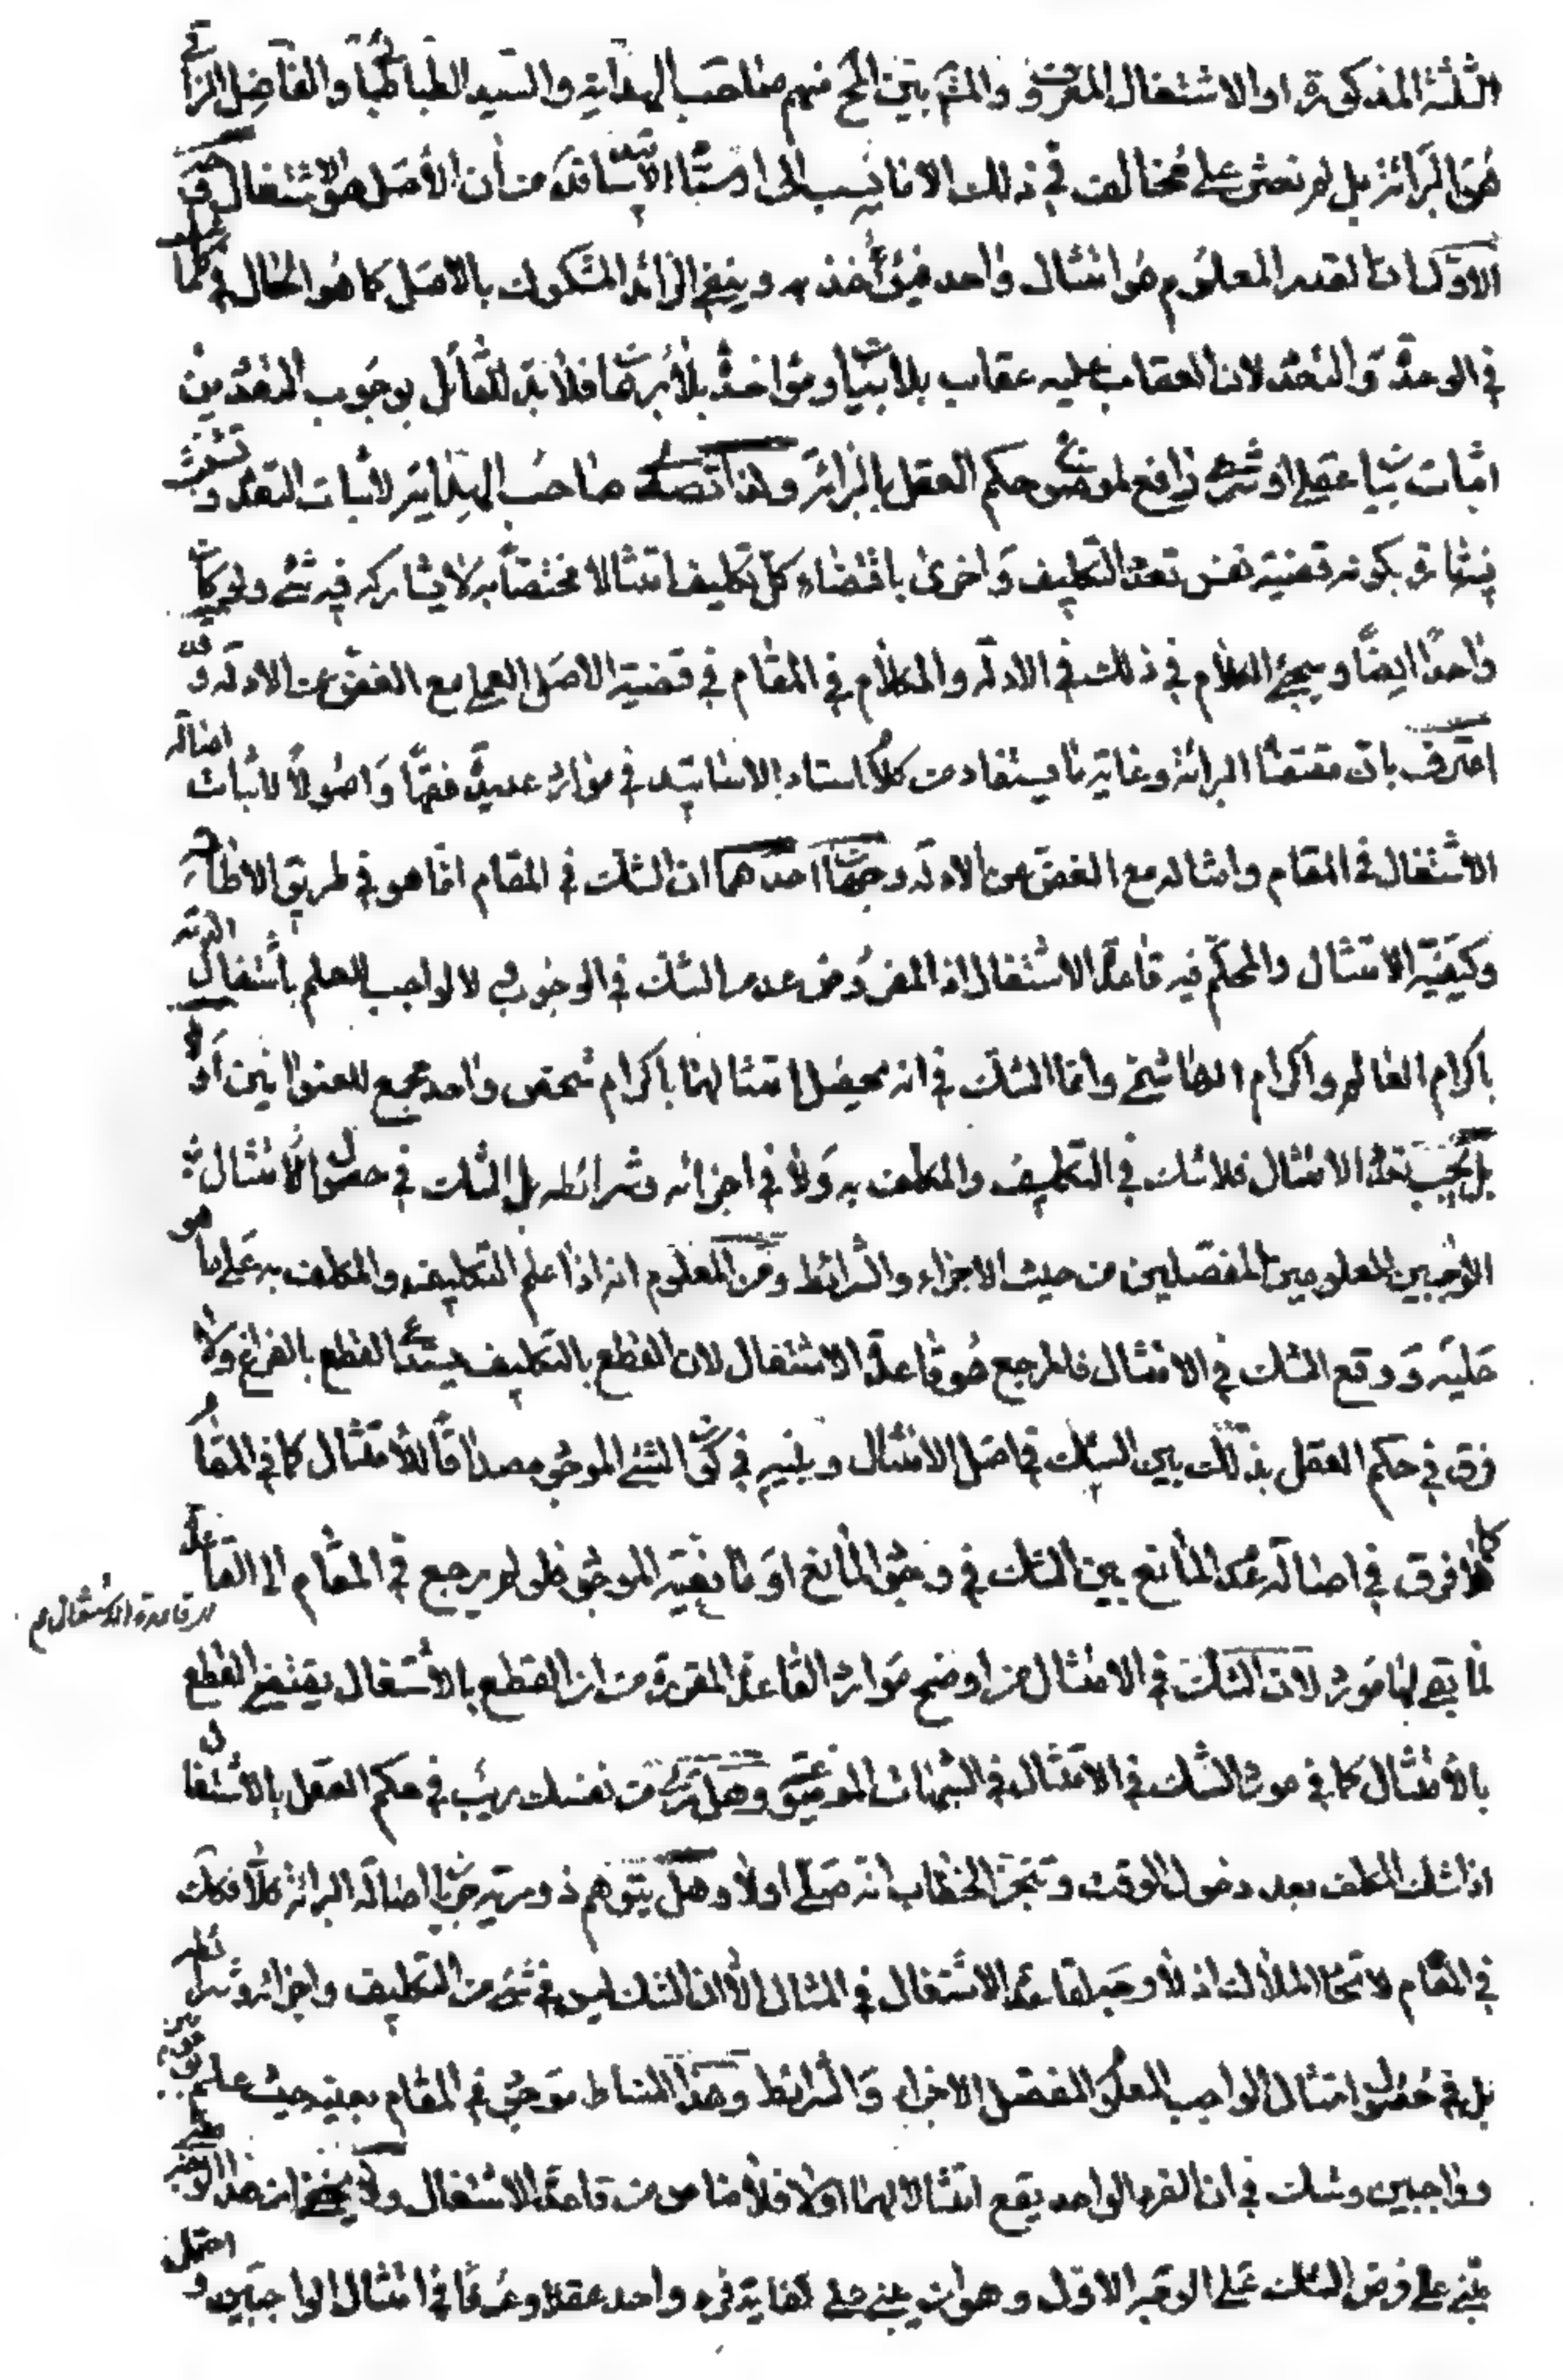 الثلثة المذكورة او الاشتغال المعروف والمش بين الخ منهم صاحب الهداية والسيد الطباطبائي والفاضل النراقي
هو البرائة بل لم نعثر على مخالف في ذلك الا ما نسب الى استاد الاساتيد من ان الأصل هو الاشتغال
الاول ان القدر المعلوم هو امتثال واحد فيؤخذ به وينفى الزائد المشكوك بالاصل كما هو الحال في كلما
في الوحدة والتعدد لان العقاب عليه عقاب بلا بيان ومؤاخذة بلا برهان فلا بد للقائل بوجوب التعدد من
اثبات بيان عقلي او شرعي رافع لموضوع حكم العقل بالبرائة ولذا تصدى صاحب الهداية لاثبات التعدد
بكونه قضية نفس تعدد التكليف واخرى باقتضاء كل تكليف امتثالا مختصا به لا يشاركه فيه شئ ولو كان
واحدا ايضا وسيجئ الكلام في ذلك في الادلة والكلام في المقام في قضية الاصل العملي مع الغض عن الادلة وقد
اعترف بان مقتضاه البرائة وغاية ما يستفاد من كلام استاد الاساتيد في موارد عديدة فقها واصولا لاثبات اصالة
الاشتغال في المقام وامثاله مع الغض عن الادلة وجهان احدهما ان الشك في المقام انما هو في طريق الاطاعة
وكيفية الامتثال والمحكم فيه قاعدة الاشتغال اذ المفروض عدم الشك في الوجوب ولا الواجب للعلم باشتغال الذمة
باكرام العالم واكرام الهاشمي وانما الشك في انه يحصل امتثالهما باكرام شخص واحد مجمع للعنوانين او لا
بل يجب تعدد الامتثال فلا شك في التكليف والمكلف به ولا في اجزائه وشرائطه بل الشك في حصول الامتثال
الواجبين المعلومين المفصلين من حيث الاجزاء والشرائط ومن المعلوم انه اذا علم التكليف والمكلف به على ما هو
عليه ووقع الشك في الامتثال فالمرجع هو قاعدة الاشتغال لان القطع بالتكليف يستدعى القطع بالفراغ ولا
فرق في حكم العقل بذلك بين الشك في اصل الامتثال وبينه في كون الشئ الموجود مصداقا للامتثال كما في المقام
كما لا فرق في اصالة عدم المانع بين الشك في وجود المانع او مانعية الموجود فلو لم يرجع في المقام الى القاعدة
قاعدة الاشتغال
لما بقي لها مورد لان الشك في الامتثال من اوضح موارد القاعدة المقررة من ان القطع بالاشتغال يقتضى القطع
بالامتثال كما في موارد الشك في الامتثال في الشبهات الموضوعية وهل ترى من نفسك ريب في حكم العقل بالاشتغال
اذا شك المكلف بعد دخول الوقت وتنجز الخطاب انه صلى او لا وهل يتوهم ذو مرية جريان اصالة البرائة كلا فكك
في المقام لاتحاد الملاك اذ لا وجه لقاعدة الاشتغال في المثال الا ان الشك ليس في شئ من التكليف واجزائه وشرائطه
بل في حصول امتثال الواجب المعلوم المفصل الاجزاء والشرائط وهذا المناط موجود في المقام بعينه حيث علم
وواجبين وشك في ان الفرد الواحد يقع امتثالا لهما او لا فلا مناص من قاعدة الاشتغال ولا يخفى ان هذا الوجه
يبنى على فرض الشك على الوجه الاول وهو ان يبنى على كفاية فرد واحد عقلا وعرفا في امتثال الواجبين و احتمل